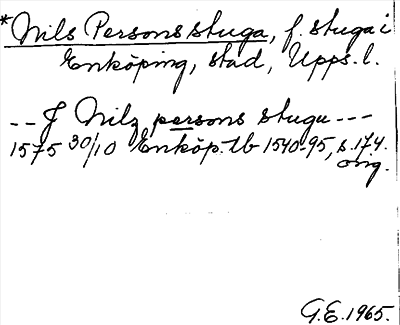 *Nils Persons stuga, f. stuga i
Enköping, stad, Upps. l.
-- J Nilz persons stugu ---
1575 30/10 Enköp. tb 1540-95, s. 174.
orig.
G.E. 1965.